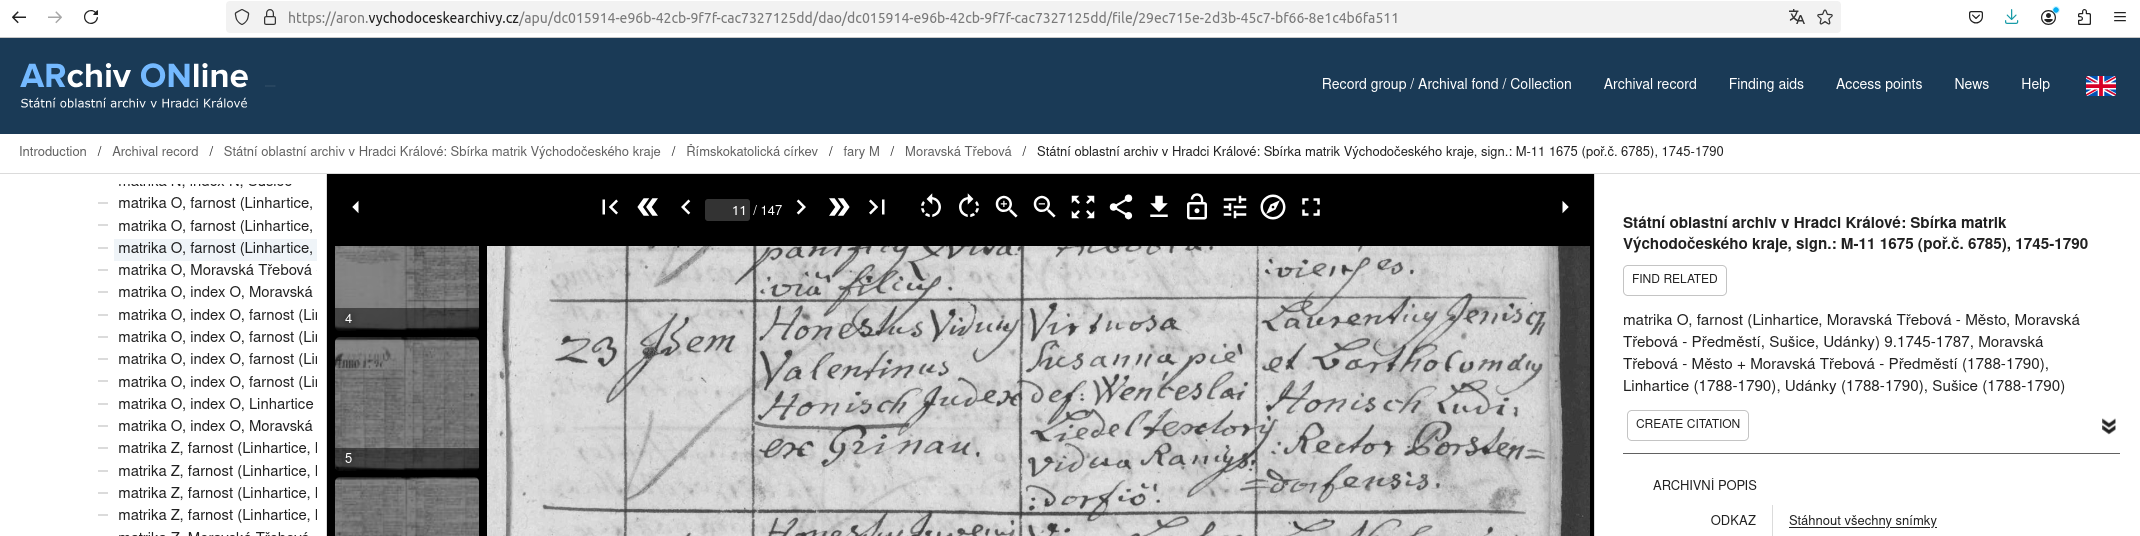 https://aron.vychodoceskearchivy.cz/apu/dc015914-e96b-42cb-9f7f-cac7327125dd/dao/dc015914-e96b-42cb-9f7f-cac7327125dd/file/29ec715e-2d3b-45c7-bf66-8e1c4b6fa511
ARchiv ONline
Státní oblastní archiv v Hradci Králové
Record group / Archival fond / Collection
Archival record
Finding aids
Access points
News
Help
Introduction / Archival record / Státní oblastní archiv v Hradci Králové: Sbírka matrik Východočeského kraje / Římskokatolická církev / fary M / Moravská Třebová / Státní oblastní archiv v Hradci Králové: Sbírka matrik Východočeského kraje, sign.: M-11 1675 (poř.č. 6785), 1745-1790
matrika N, index N, Sušice
matrika O, farnost (Linhartice,
matrika O, farnost (Linhartice,
matrika O, farnost (Linhartice,
matrika O, Moravská Třebová
matrika O, index O, Moravská
matrika O, index O, farnost (Lin
matrika O, index O, farnost (Lin
matrika O, index O, farnost (Lin
matrika O, index O, farnost (Lin
matrika O, index O, Linhartice
matrika O, index O, Moravská
matrika Z, farnost (Linhartice, l
matrika Z, farnost (Linhartice, l
matrika Z, farnost (Linhartice, l
matrika Z, farnost (Linhartice, l
matrika Z, Moravská Třebová
11 / 147
4
5
:viä filius.
23 Idem
Honestus Viduus
Valentinus
Honisch Judex
ex Grinau.
Virtuosa
Susanna pie
def: Wenceslai
Liedel textoris
vidua Ranigs:
:dorfiö:
Laurentius Jenisch
et Bartholomäus
Honisch Ludi:
:Rector Porsten=
=dorfensis.
Státní oblastní archiv v Hradci Králové: Sbírka matrik
Východočeského kraje, sign.: M-11 1675 (poř.č. 6785), 1745-1790
FIND RELATED
matrika O, farnost (Linhartice, Moravská Třebová - Město, Moravská
Třebová - Předměstí, Sušice, Udánky) 9.1745-1787, Moravská
Třebová - Město + Moravská Třebová - Předměstí (1788-1790),
Linhartice (1788-1790), Udánky (1788-1790), Sušice (1788-1790)
CREATE CITATION
ARCHIVNÍ POPIS
ODKAZ
Stáhnout všechny snímky